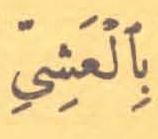 بِٱلْعَشِيِّ